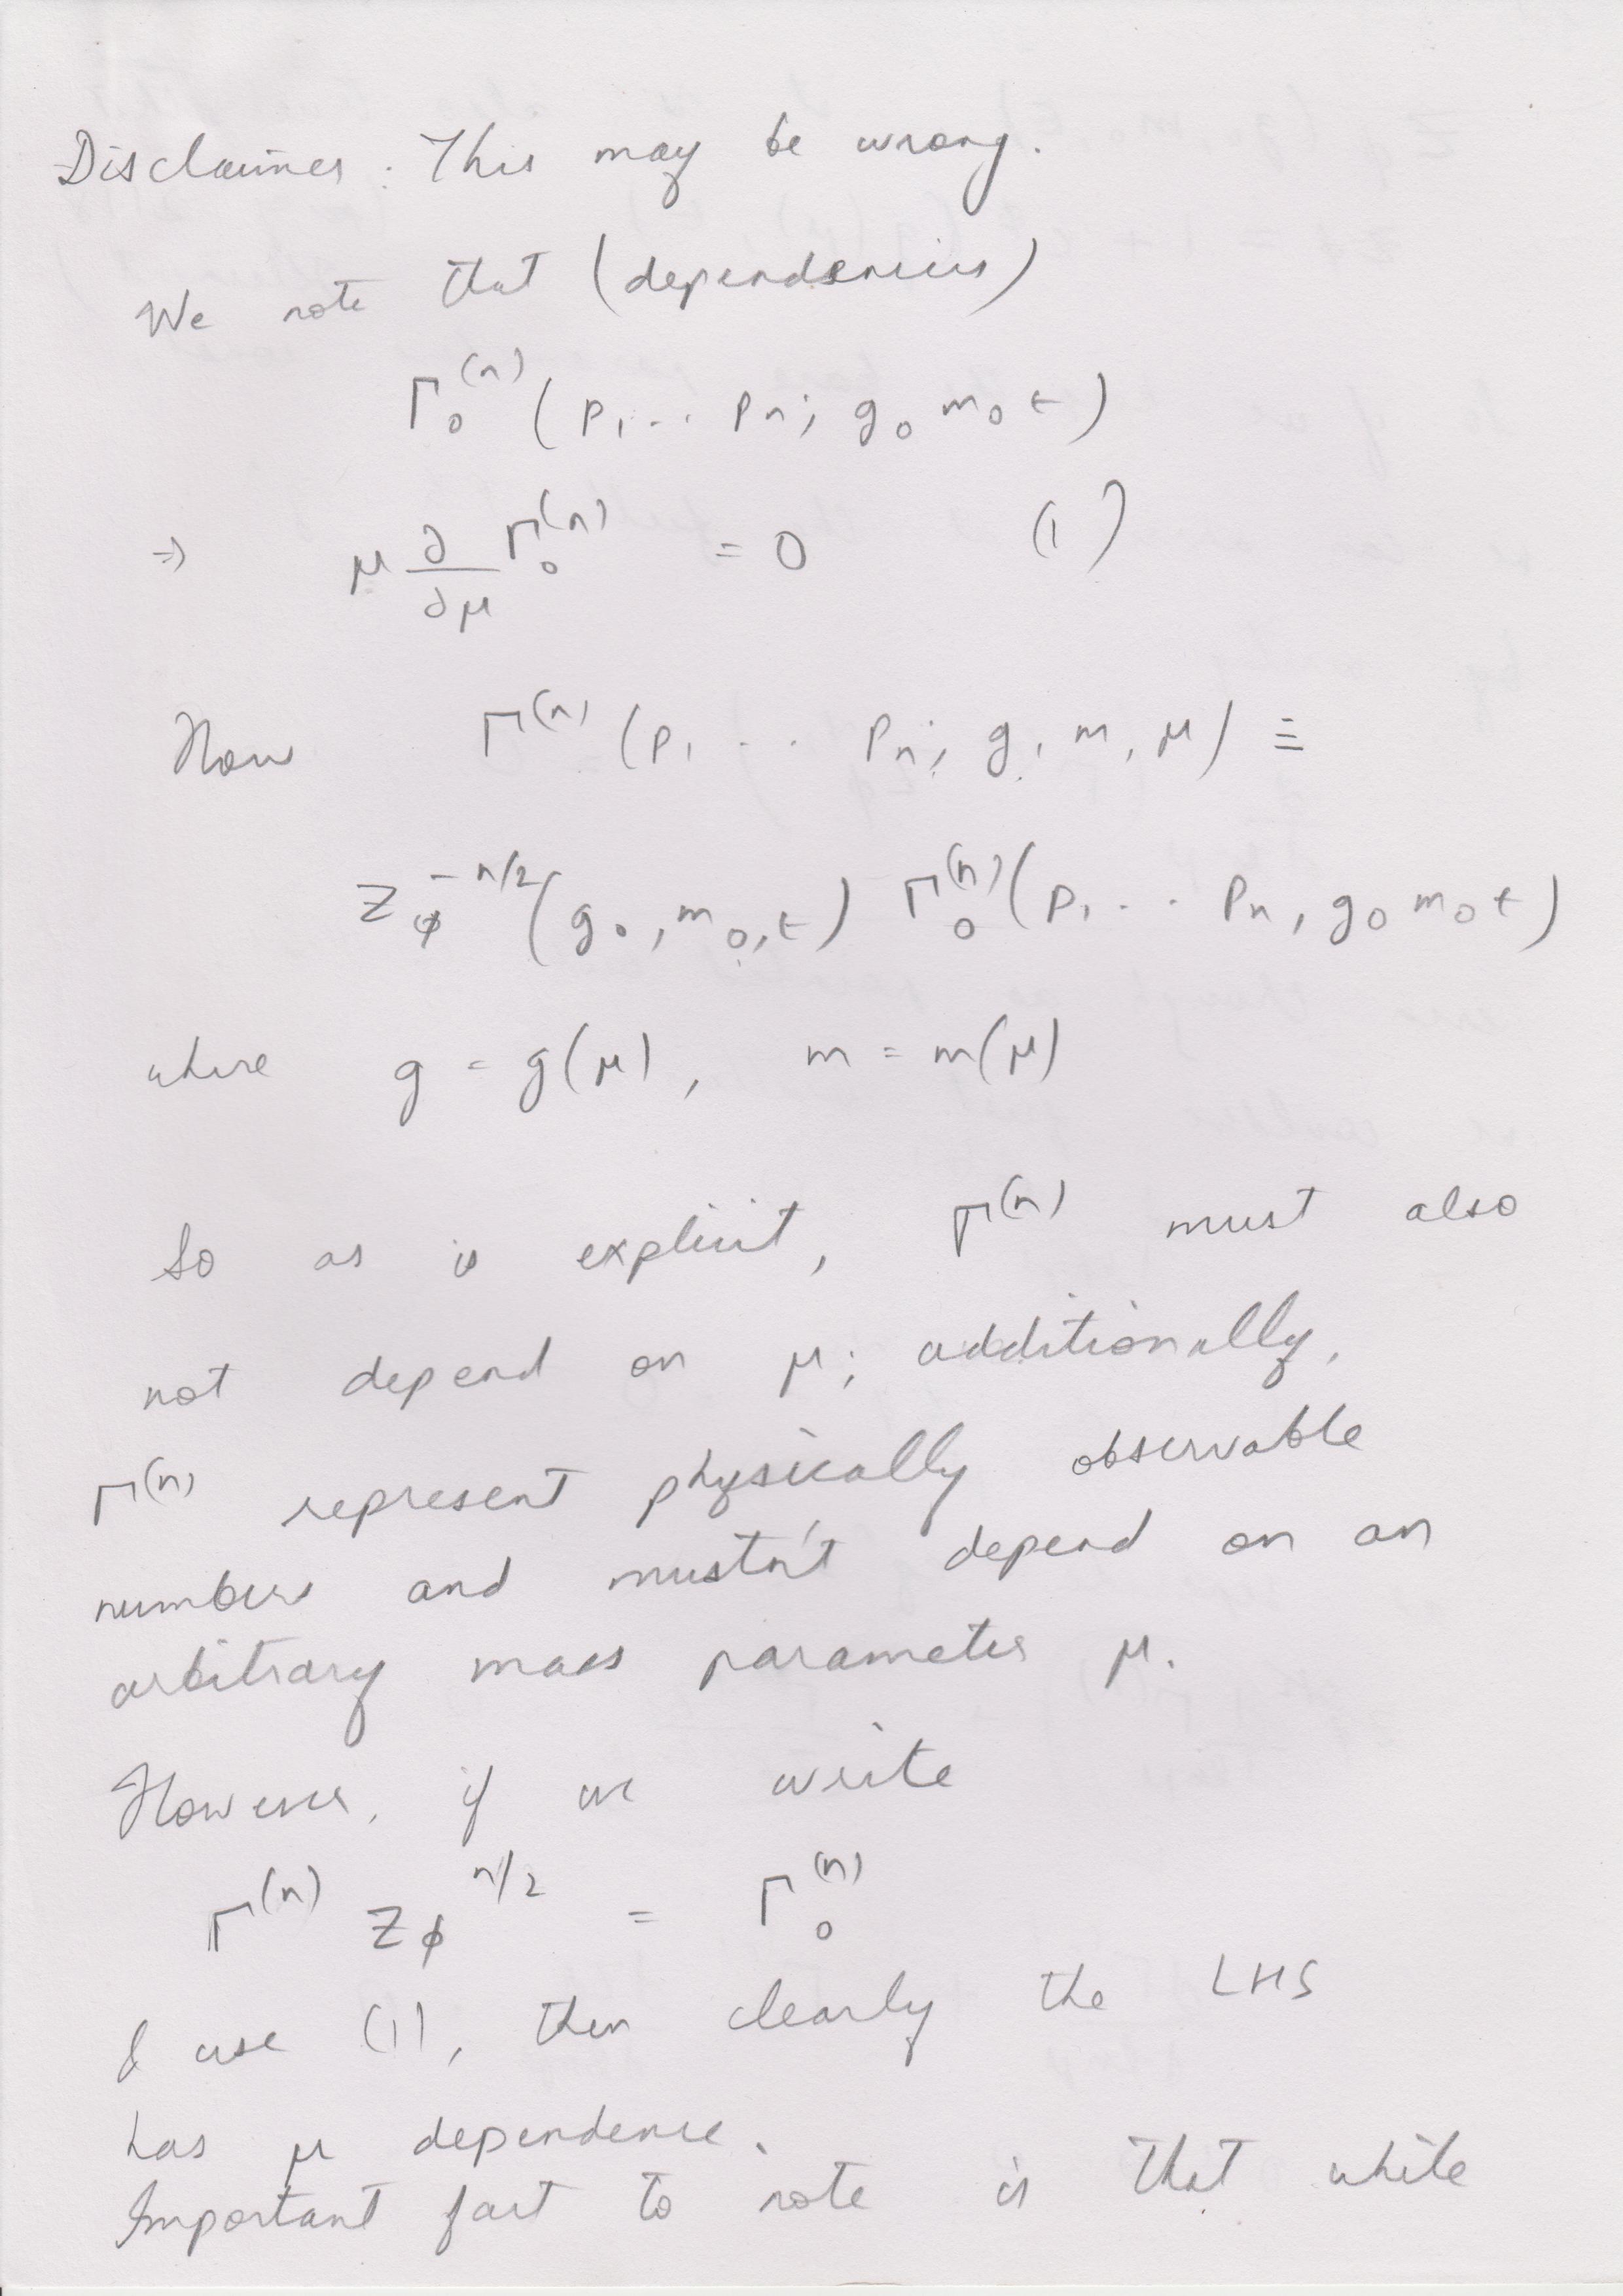 Disclaimer : This may be wrong.
We note that (dependencies)
Γ₀⁽ⁿ⁾ (p₁ .. pₙ; g₀ m₀ ε)
⇒ μ ∂/∂μ Γ₀⁽ⁿ⁾ = 0 (1)
Now Γ⁽ⁿ⁾ (p₁ . . . pₙ; g, m, μ) ≡
Z_ϕ^{-n/2} (g₀, m₀, ε) Γ₀⁽ⁿ⁾ (p₁ . . . pₙ, g₀ m₀ ε)
where g = g(μ), m = m(μ)
So as is explicit, Γ⁽ⁿ⁾ must also
not depend on μ; additionally,
Γ⁽ⁿ⁾ represent physically observable
numbers and mustn't depend on an
arbitrary mass parameter μ.
However, if we write
Γ⁽ⁿ⁾ Z_ϕ^{n/2} = Γ₀⁽ⁿ⁾
& use (1), then clearly the LHS
has μ dependence.
Important fact to note is that while